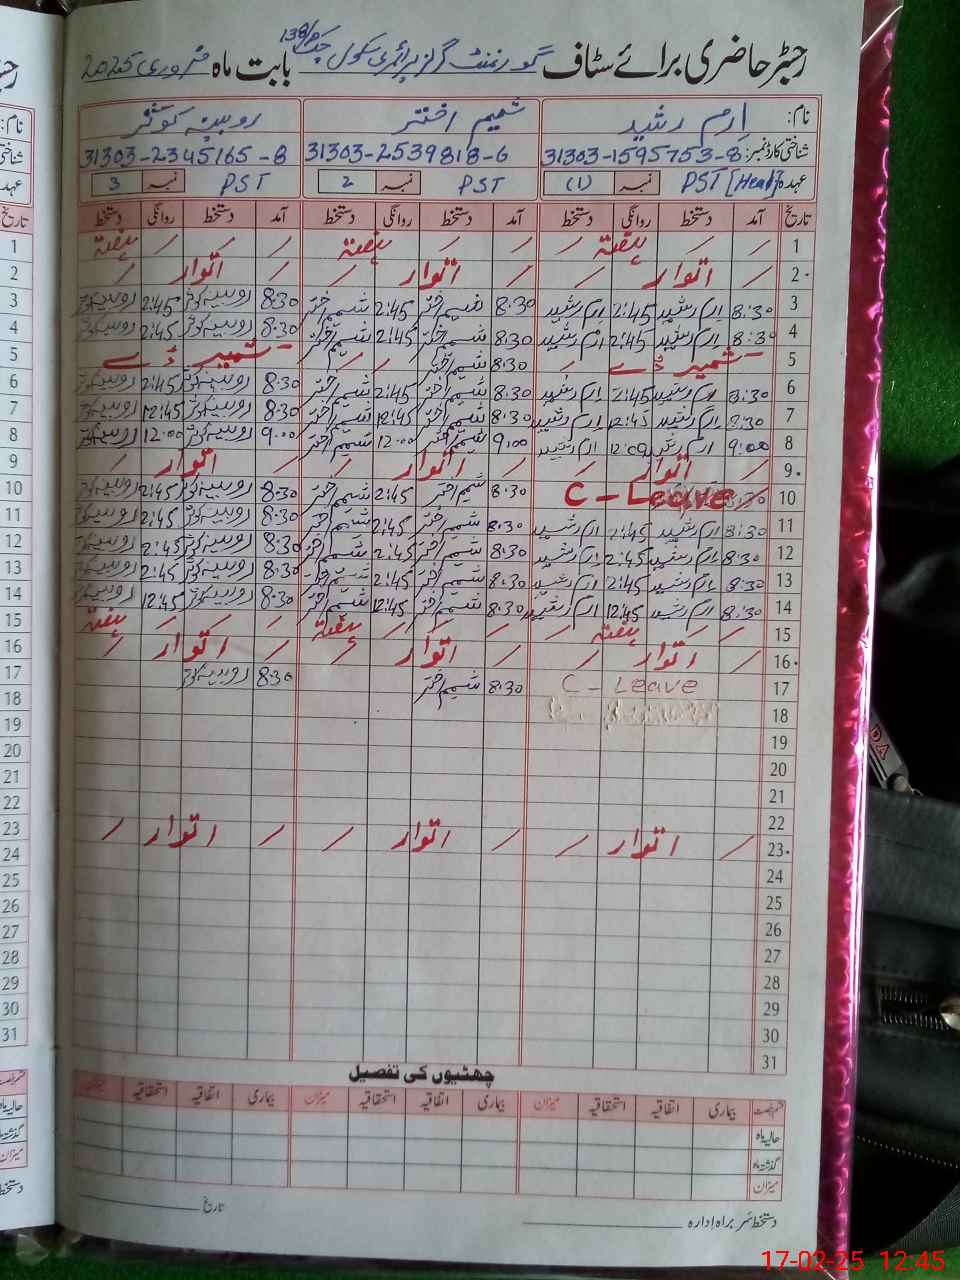 رجسٹر حاضری برائے سٹاف گورنمنٹ گرلز پرائمری سکول چک 138/P بابت ماہ فروری 2025
نام: ارم رشید شمیم اختر روبینہ کوثر
شناختی کارڈ نمبر: 31303-1595753-8 31303-2539818-6 31303-2345165-8
عہدہ PST [Head] نمبر (1) PST نمبر 2 PST نمبر 3
تاریخ آمد دستخط روانگی دستخط آمد دستخط روانگی دستخط آمد دستخط روانگی دستخط
1 ہفتہ ہفتہ ہفتہ
2 اتوار اتوار اتوار
3 8:30 ارم رشید 2:45 ارم رشید 8:30 شمیم اختر 2:45 شمیم اختر 8:30 روبینہ کوثر 2:45 روبینہ کوثر
4 8:30 ارم رشید 2:45 ارم رشید 8:30 شمیم اختر 2:45 شمیم اختر 8:30 روبینہ کوثر 2:45 روبینہ کوثر
5 کشمیر ڈے 8:30 شمیم اختر کشمیر ڈے
6 8:30 ارم رشید 2:45 ارم رشید 8:30 شمیم اختر 2:45 شمیم اختر 8:30 روبینہ کوثر 2:45 روبینہ کوثر
7 8:30 ارم رشید 12:45 ارم رشید 8:30 شمیم اختر 12:45 شمیم اختر 8:30 روبینہ کوثر 12:45 روبینہ کوثر
8 9:00 ارم رشید 12:00 ارم رشید 9:00 شمیم اختر 12:00 شمیم اختر 9:00 روبینہ کوثر 12:00 روبینہ کوثر
9 اتوار اتوار اتوار
10 8:30 C - Leave 8:30 شمیم اختر 2:45 شمیم اختر 8:30 روبینہ کوثر 2:45 روبینہ کوثر
11 8:30 ارم رشید 2:45 ارم رشید 8:30 شمیم اختر 2:45 شمیم اختر 8:30 روبینہ کوثر 2:45 روبینہ کوثر
12 8:30 ارم رشید 2:45 ارم رشید 8:30 شمیم اختر 2:45 شمیم اختر 8:30 روبینہ کوثر 2:45 روبینہ کوثر
13 8:30 ارم رشید 2:45 ارم رشید 8:30 شمیم اختر 2:45 شمیم اختر 8:30 روبینہ کوثر 2:45 روبینہ کوثر
14 8:30 ارم رشید 12:45 ارم رشید 8:30 شمیم اختر 12:45 شمیم اختر 8:30 روبینہ کوثر 12:45 روبینہ کوثر
15 ہفتہ ہفتہ ہفتہ
16 اتوار اتوار اتوار
17 C - Leave 8:30 شمیم اختر 8:30 روبینہ کوثر
18
19
20
21
22
23 اتوار اتوار اتوار
24
25
26
27
28
29
30
31
چھٹیوں کی تفصیل
قسم رخصت بیماری اتفاقیہ استحقاقیہ میزان بیماری اتفاقیہ استحقاقیہ میزان بیماری اتفاقیہ استحقاقیہ میزان
حالیہ ماہ
گذشتہ ماہ
میزان
دستخط سربراہ ادارہ تاریخ
17-02-25 12:45